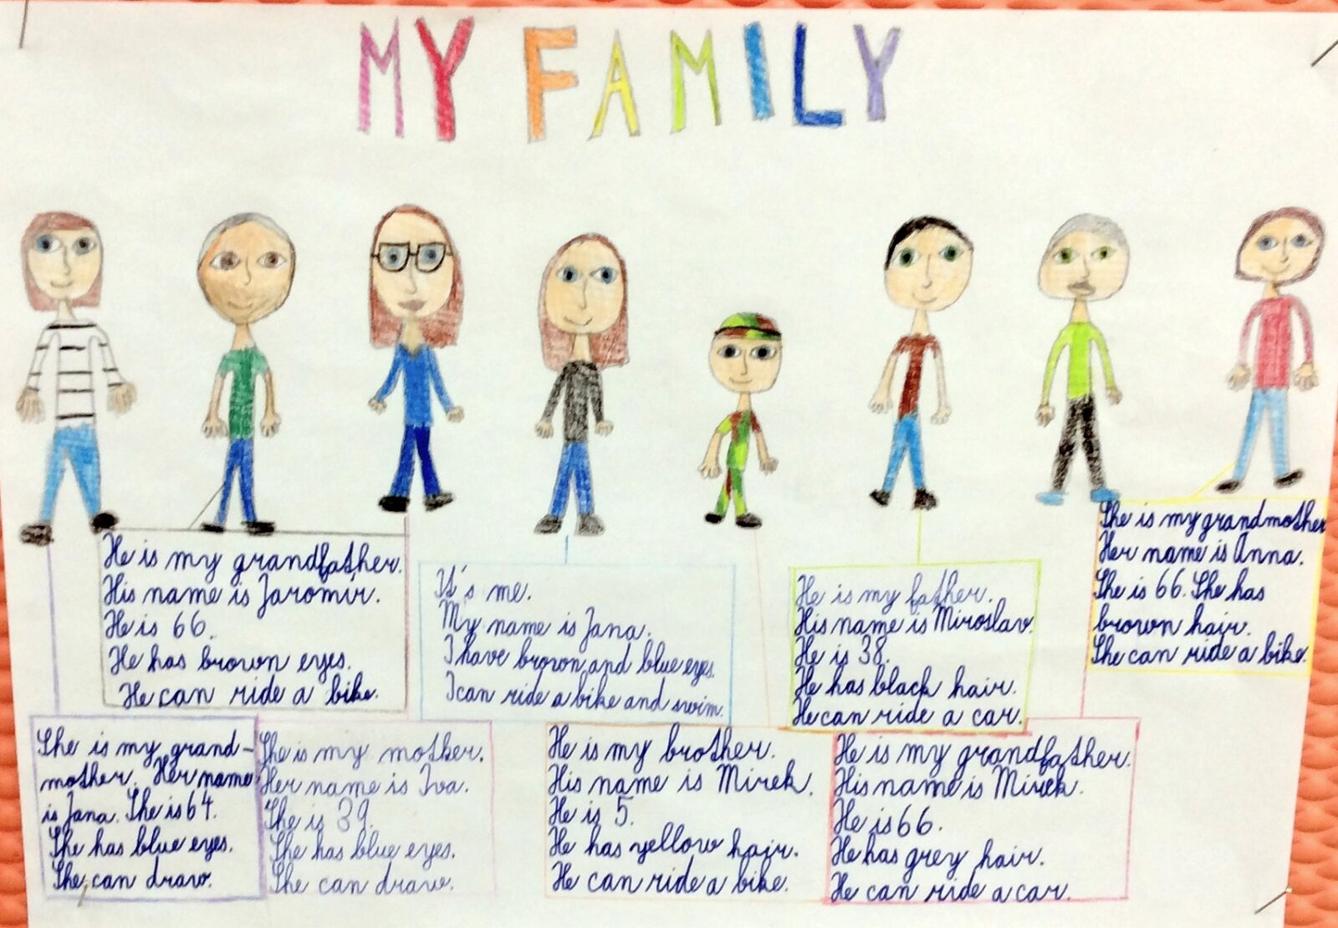 MY FAMILY
He is my grandfather.
His name is Jaromír.
He is 66.
He has brown eyes.
He can ride a bike.
It's me.
My name is Jana.
I have brown and blue eyes.
I can ride a bike and swim.
He is my father.
His name is Miroslav.
He is 38.
He has black hair.
He can ride a car.
She is my grandmother
Her name is Anna.
She is 66. She has
brown hair.
She can ride a bike.
She is my grand-
mother. Her name
is Jana. She is 64.
She has blue eyes.
She can draw.
She is my mother.
Her name is Iva.
She is 39.
She has blue eyes.
She can draw.
He is my brother.
His name is Mirek.
He is 5.
He has yellow hair.
He can ride a bike.
He is my grandfather.
His name is Mirek.
He is 66.
He has grey hair.
He can ride a car.